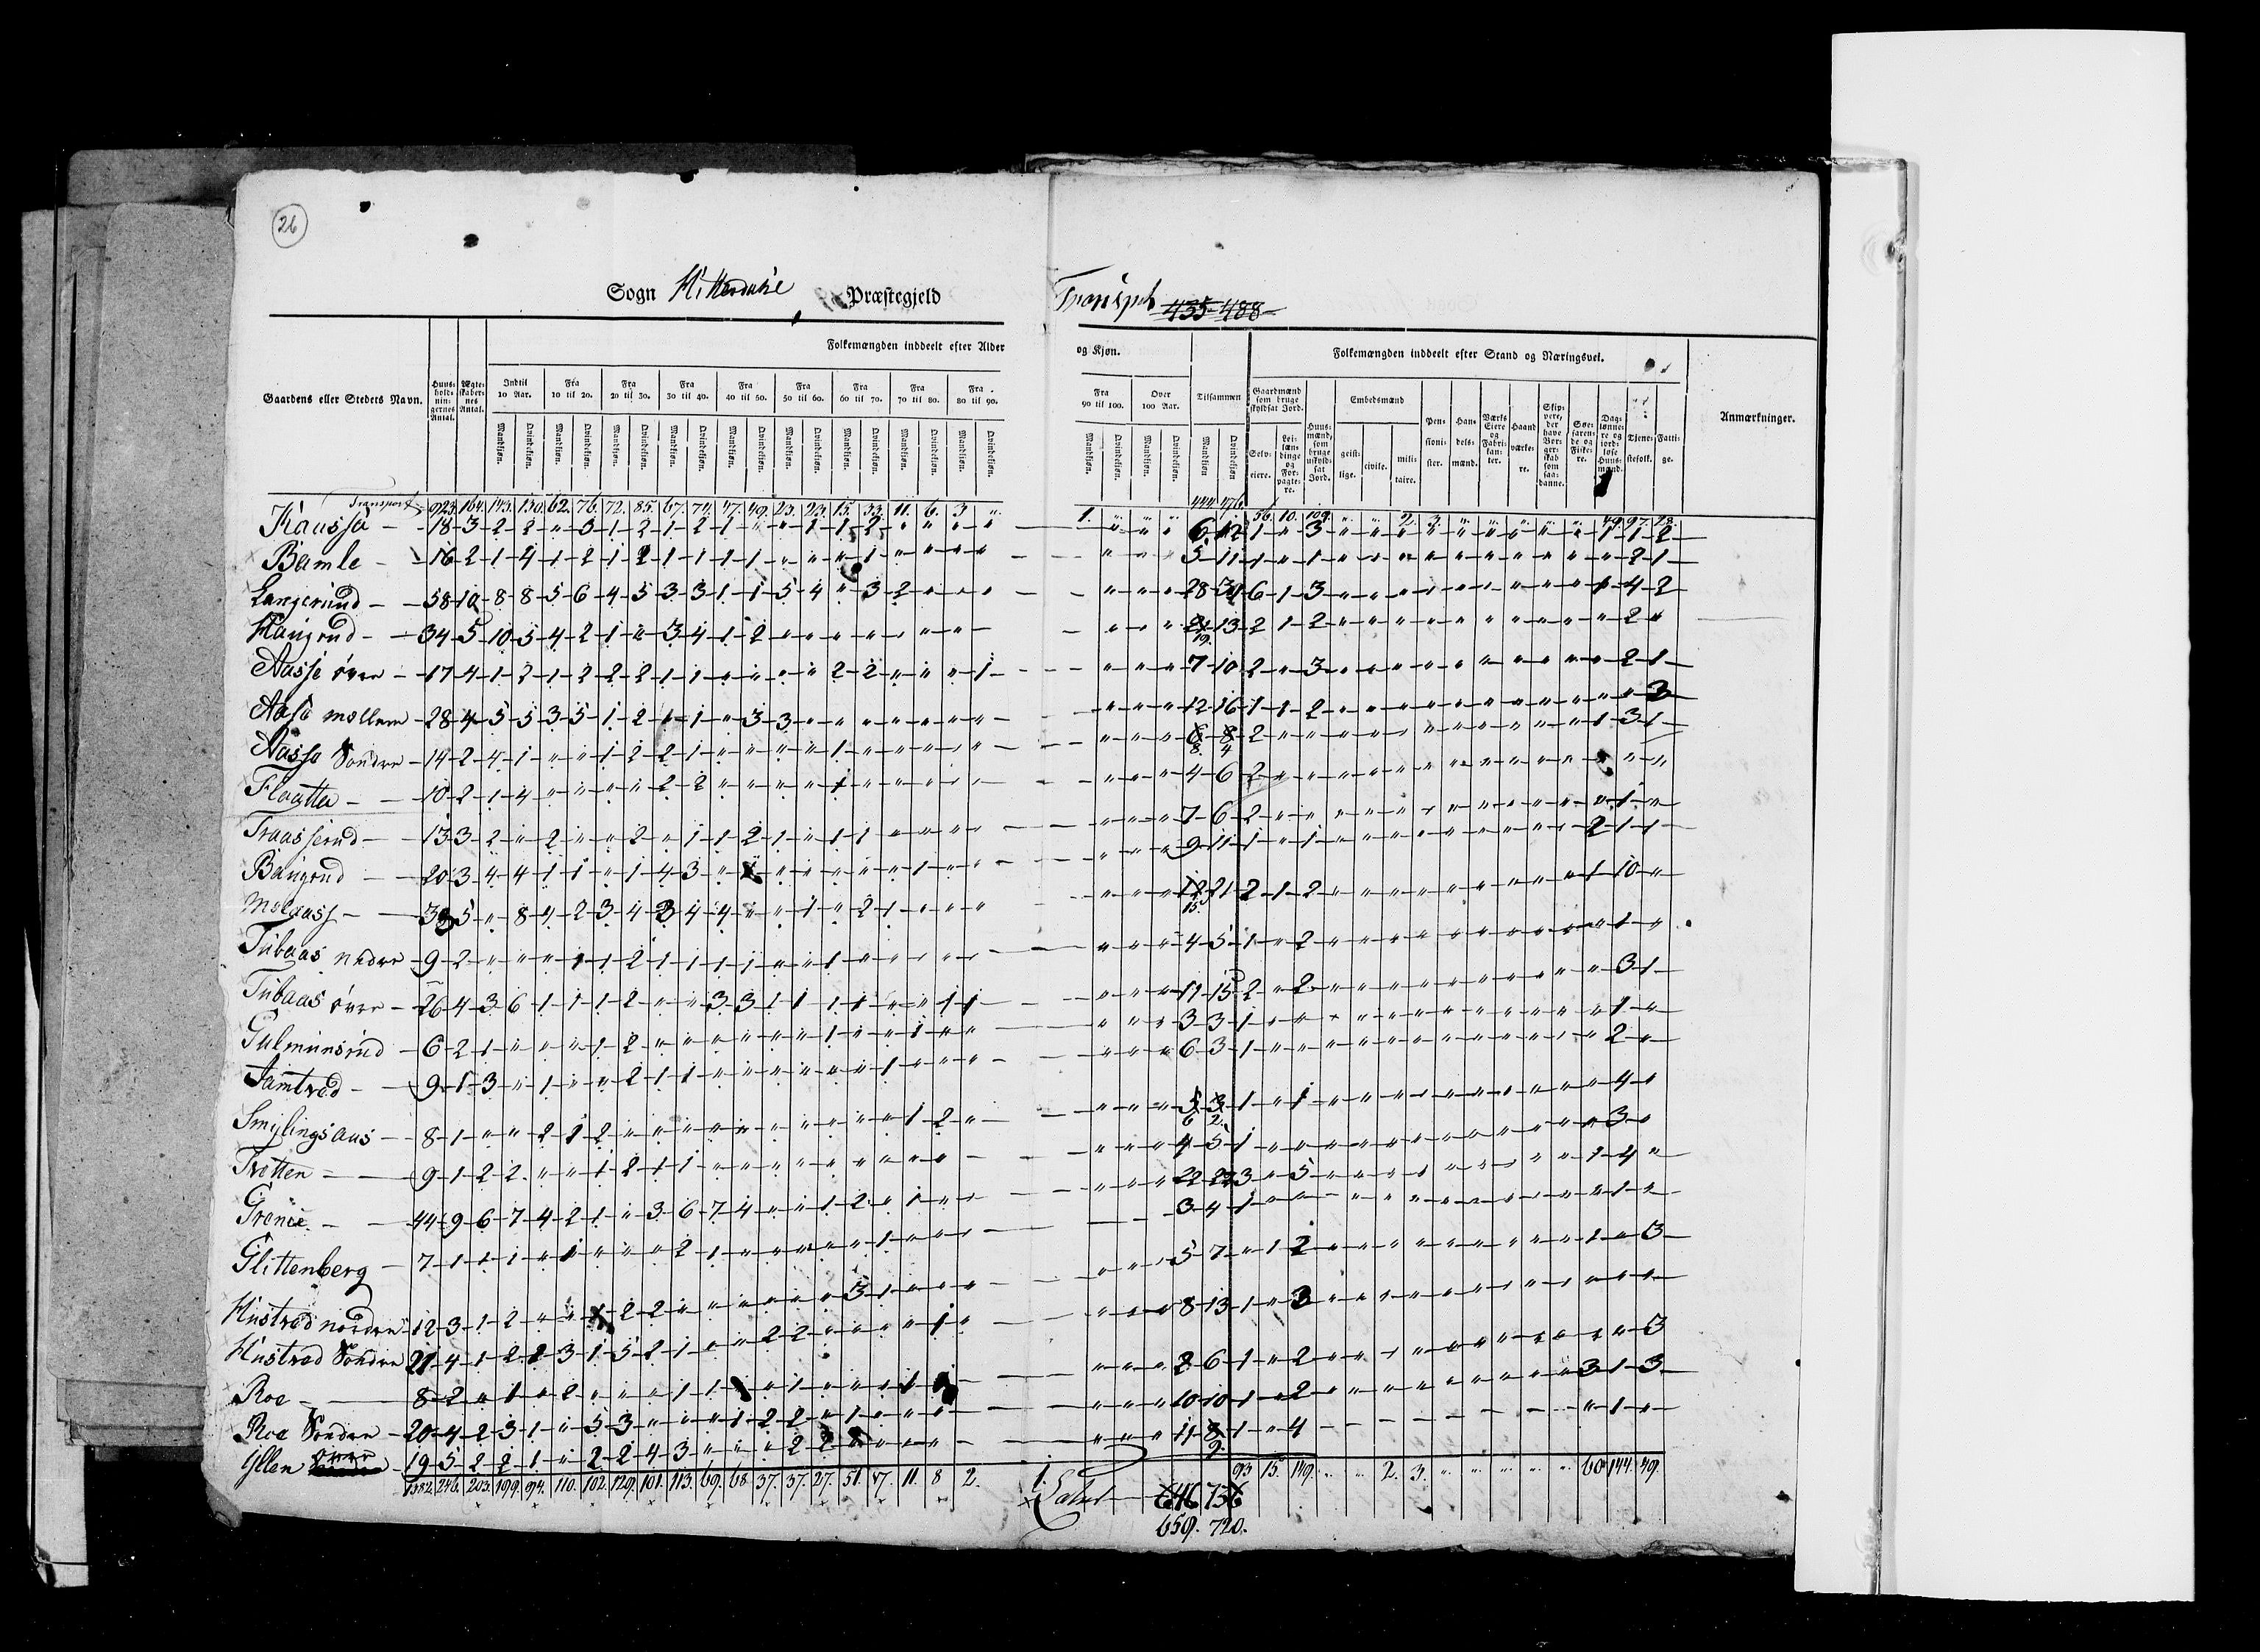 26
Sogn Hitterdahl Præstegjeld
Transpt 435-488
Gaardens eller Stedets Navn.
Huus-holdnin-gernes Antal.
Ægte-skaber-nes Antal.
Folkemængden inddeelt efter Alder og Kjøn.
Indtil 10 Aar.
Fra 10 til 20.
Fra 20 til 30.
Fra 30 til 40.
Fra 40 til 50.
Fra 50 til 60.
Fra 60 til 70.
Fra 70 til 80.
Fra 80 til 90.
Fra 90 til 100.
Over 100 Aar.
Tilsammen
Mandkjøn. Qvindekjøn.
Folkemængden inddeelt efter Stand og Næringsvei.
Gaardmænd som bruge skyldsat Jord.
Selv-eiere.
Lei-læn-dinge og For-pagte-re.
Huus-mænd, som bruge uskyld-sat Jord.
Embedsmænd
geist-lige.
civile.
mili-taire.
Pen-sioni-ster.
Han-dels-mænd.
Værks Eiere og Fabri-kan-ter.
Haand værke-re.
Skip-pere, der have Bor-ger-skab som saa-danne.
Søe-faren-de og Fiske-re.
Dag-lønne-re og jord-løse Huus-mænd.
Tjene-stefolk.
Fatti-ge.
Anmærkninger.
Transport 923. 164. 143. 130. 62. 76. 72. 85. 67. 74. 47. 49. 23. 23. 15. 33. 11. 6. 3 " 1. " " " 444 476 56. 10. 109. " " 2. 3. " " " " " 49. 97. 28.
Kaasa - 18-3-2-2-"-3-1-2-1-2-1-"-"-1-1-2-"-"-"-" 6-12-1-"-3 1-1-2
Bamle - 16-2-1-4-1-2-1-2-1-1-1-1-"-"-"-1-"-"-"-" 5-11-1-"-1 "-2-1
Langerud - 58-10-8-8-5-6-4-5-3-3-1-1-5-4-"-3-2-"-"-" 28-30-6-1-3 1-4-2
Haugrud - 34-5-10-5-4-2-1-"-3-4-1-2 21-13-2-1-2 "-2-"
19.
Aasse øvre - 17-4-1-2-1-2-2-2-1-1-"-"-"-"-2-2-"-"-"-1 7-10-2-"-3 "-2-1
Aase mellem - 28-4-5-5-3-5-1-2-1-1-"-3-3 12-16-1-1-2 "-"-3
Aasse Søndre - 14-2-4-1-"-"-1-2-2-1-"-"-"-"-1 6-8-2 1-3-1
8. 4
Flaatta - 10-2-1-4-"-"-"-"-2-2-"-"-"-"-1 4-6-2
Traasserud - 13-3-2-"-2-"-"-2-"-1-1-2-1-"-1-1 7-6-2 "-1-"
Baugrud - 20-3-4-4-1-1-"-1-4-3 9-11-1-"-1 2-1-1
Molaass - 5-"-8-4-2-3-4-3-4-4-"-"-1-"-2-1 12-21-2-1-2 1-10-"
15.
Tubaas nedre - 9-2-"-"-"-1-1-2-1-1-1-1-"-"-1 4-5-1-"-2 "-1-"
Tubaas øvre - 26-4-3-6-1-1-1-2-"-"-3-3-1-1-1-1-"-"-1-1 11-15-2-"-2 "-3-1
Gulmunsrud - 6-2-1-"-"-"-1-2-"-"-"-"-"-"-1-"-"-1 3-3-1 "-1-"
Jamtrød - 9-1-3-"-1-"-"-2-1-1-"-"-"-"-"-"-1 6-3-1 "-2-"
Smylingsaas - 8-1-"-"-2-1-2-"-"-"-"-"-"-"-"-"-"-1-2-" 5-3-1-"-1 "-4-"
6 2.
Trotten - 9-1-2-2-"-"-1-2-1-1 4-5-1 "-3-"
Grenie - 44-9-6-7-4-2-1-"-3-6-7-4-"-"-1-2-"-1 22-22-3-"-5 1-4-"
Glittenberg - 7-1-1-1-"-1-"-"-"-2-1-"-"-"-"-"-1 3-4-1 "-1-"
Hustrød nordre - 12-3-1-2 5-7-"-1-2 1-"-3
Hustrød Søndre 21-4-1-2-2-3-1-5-2-1-"-"-2-2-"-"-"-"-1-" 8-13-1-"-3
Roe - 8-2-"-1-"-2-"-"-"-1-1 2-6-1-"-2 "-"-3
Roe Søndre - 20-4-2-3-1-"-5-3-"-"-"-1-2-2-"-1 10-10-1-"-2 3-1-3
Yllen øvre - 19-5-2-2-1-"-2-2-4-3 11-8-1-"-4 "-1-"
9.
1382. 246. 203. 199. 94. 110. 102. 129. 101. 113. 69. 68. 37. 37. 27. 51. 17. 11. 8 2. 1. 93 15. 149. " " 2. 3. " " " " " 60 144. 49.
Latus 646 736
659. 720.